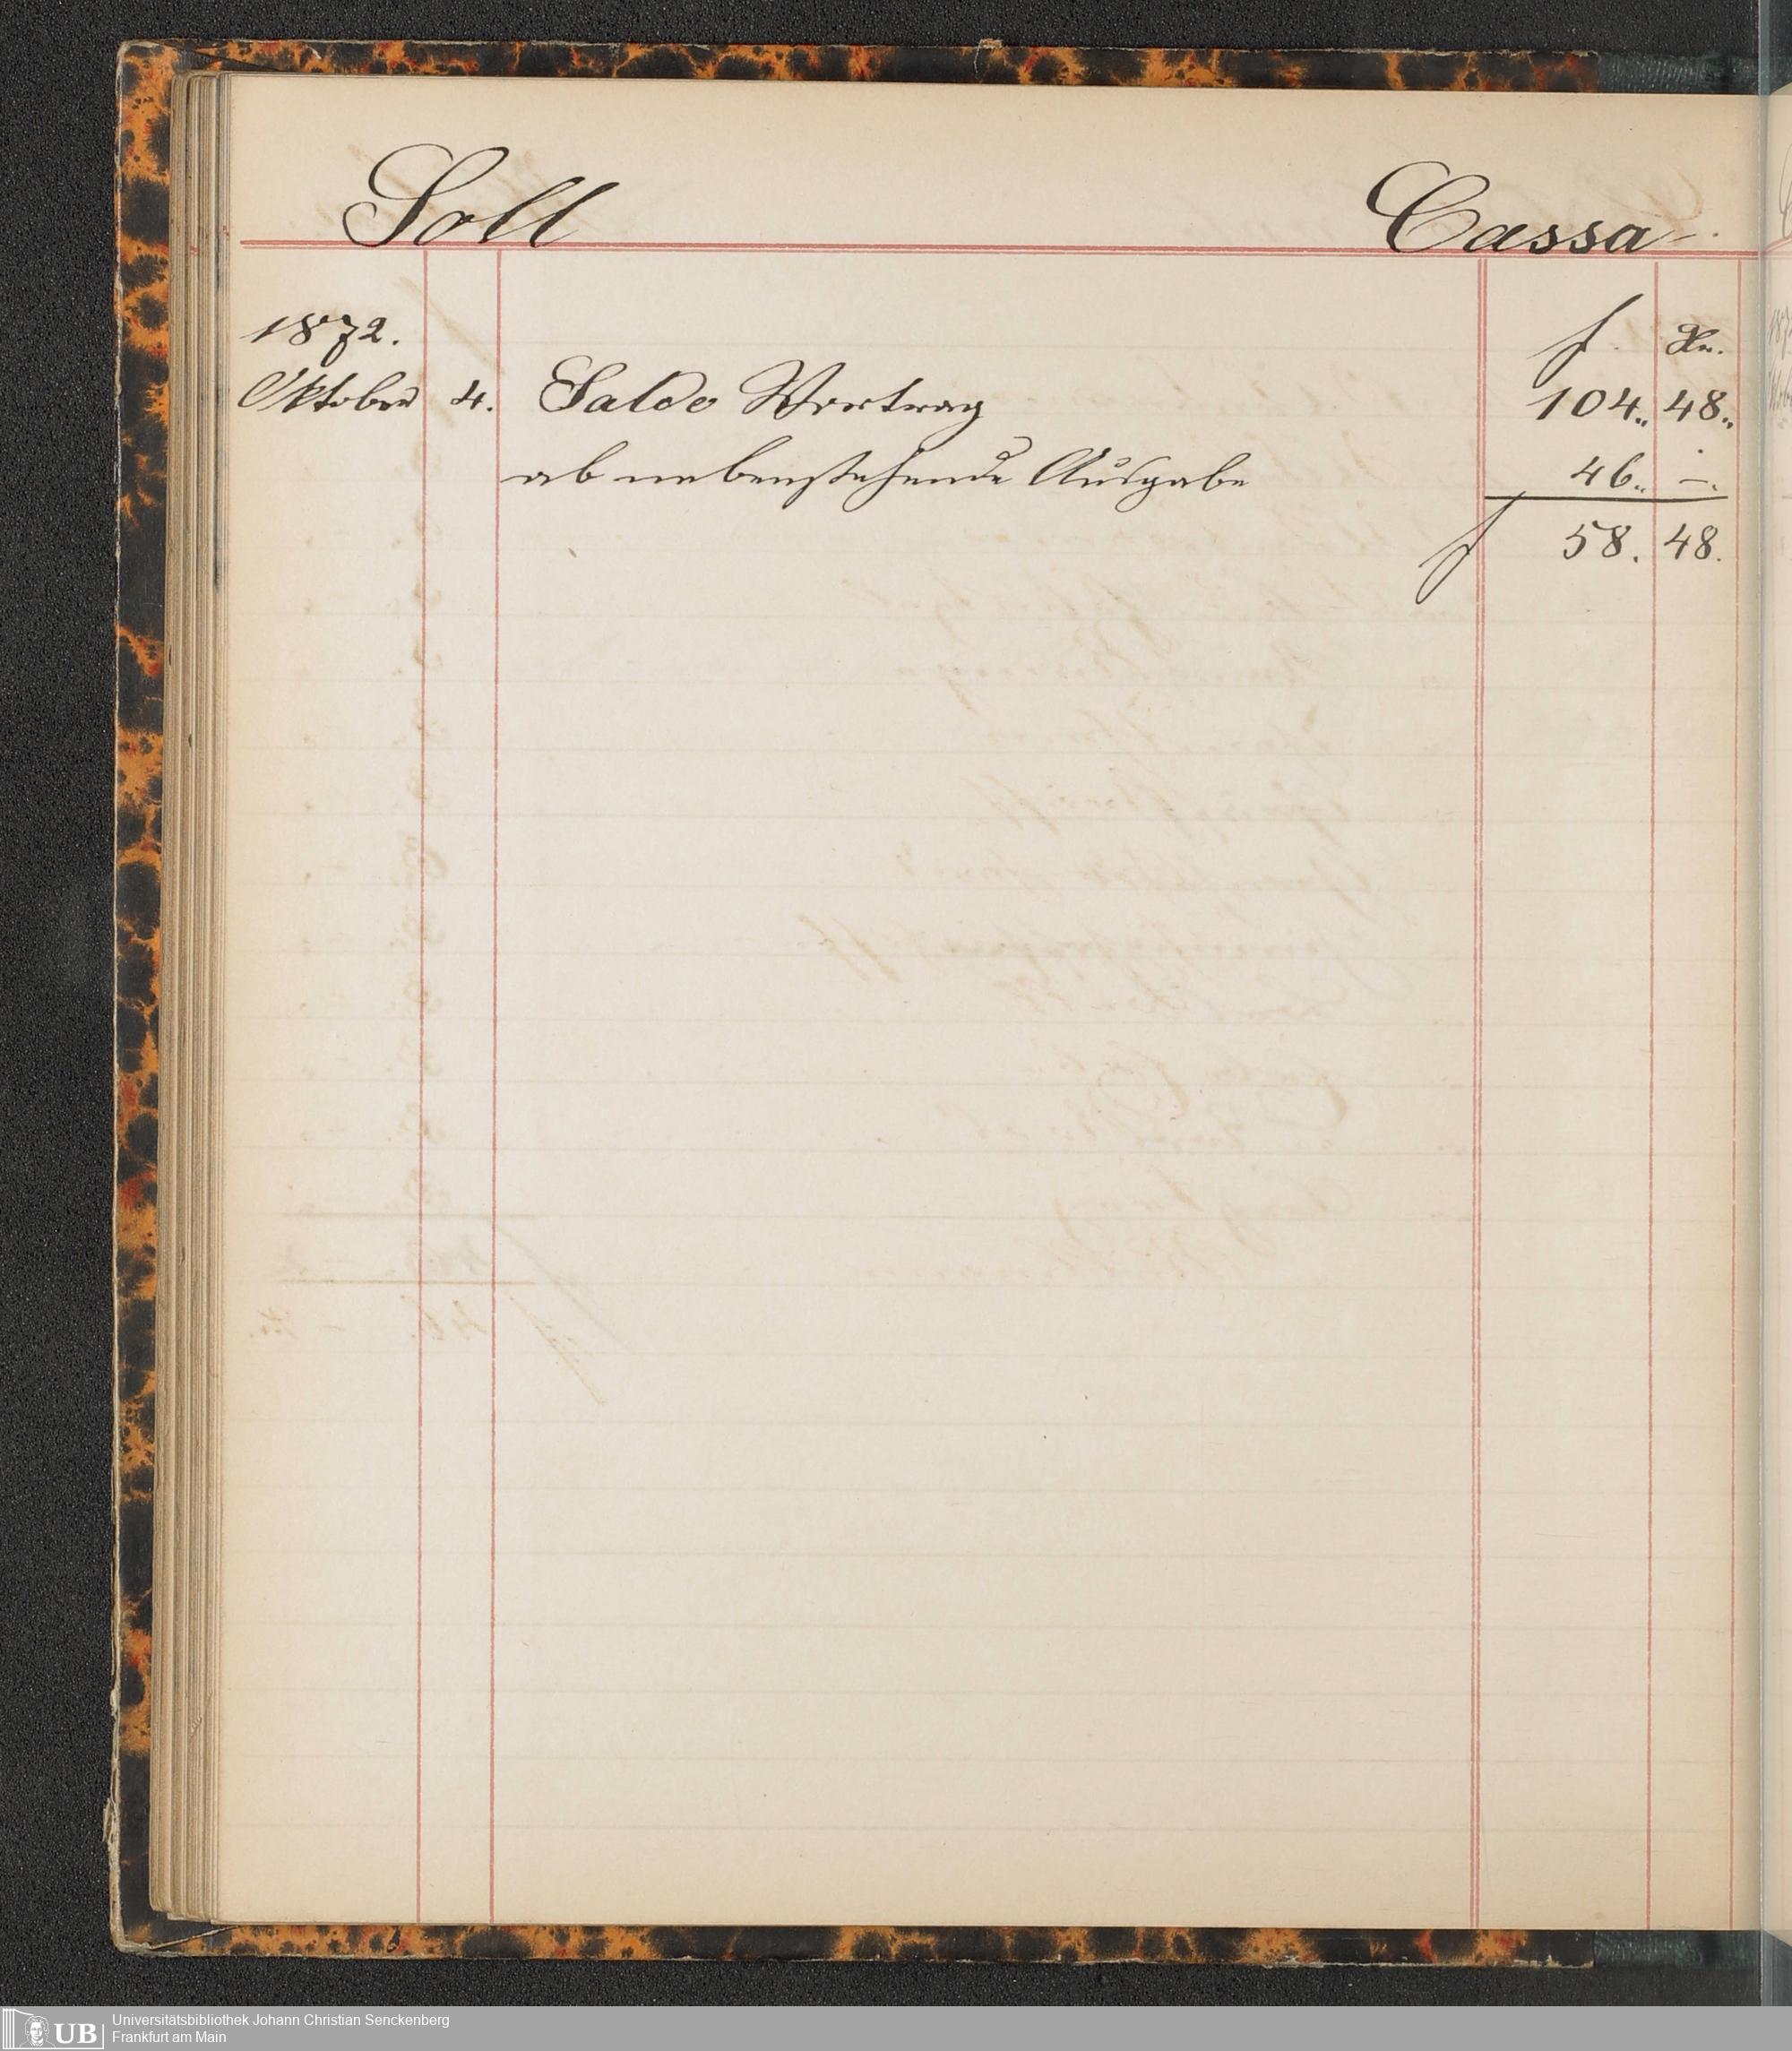 Soll Cassa.
1872. f. Xr.
Oktober 4. Saldo Vortrag 104.. 48..
ab nebenstehende Ausgabe 46.. -.
f 58. 48.
UB
Universitätsbibliothek Johann Christian Senckenberg
Frankfurt am Main